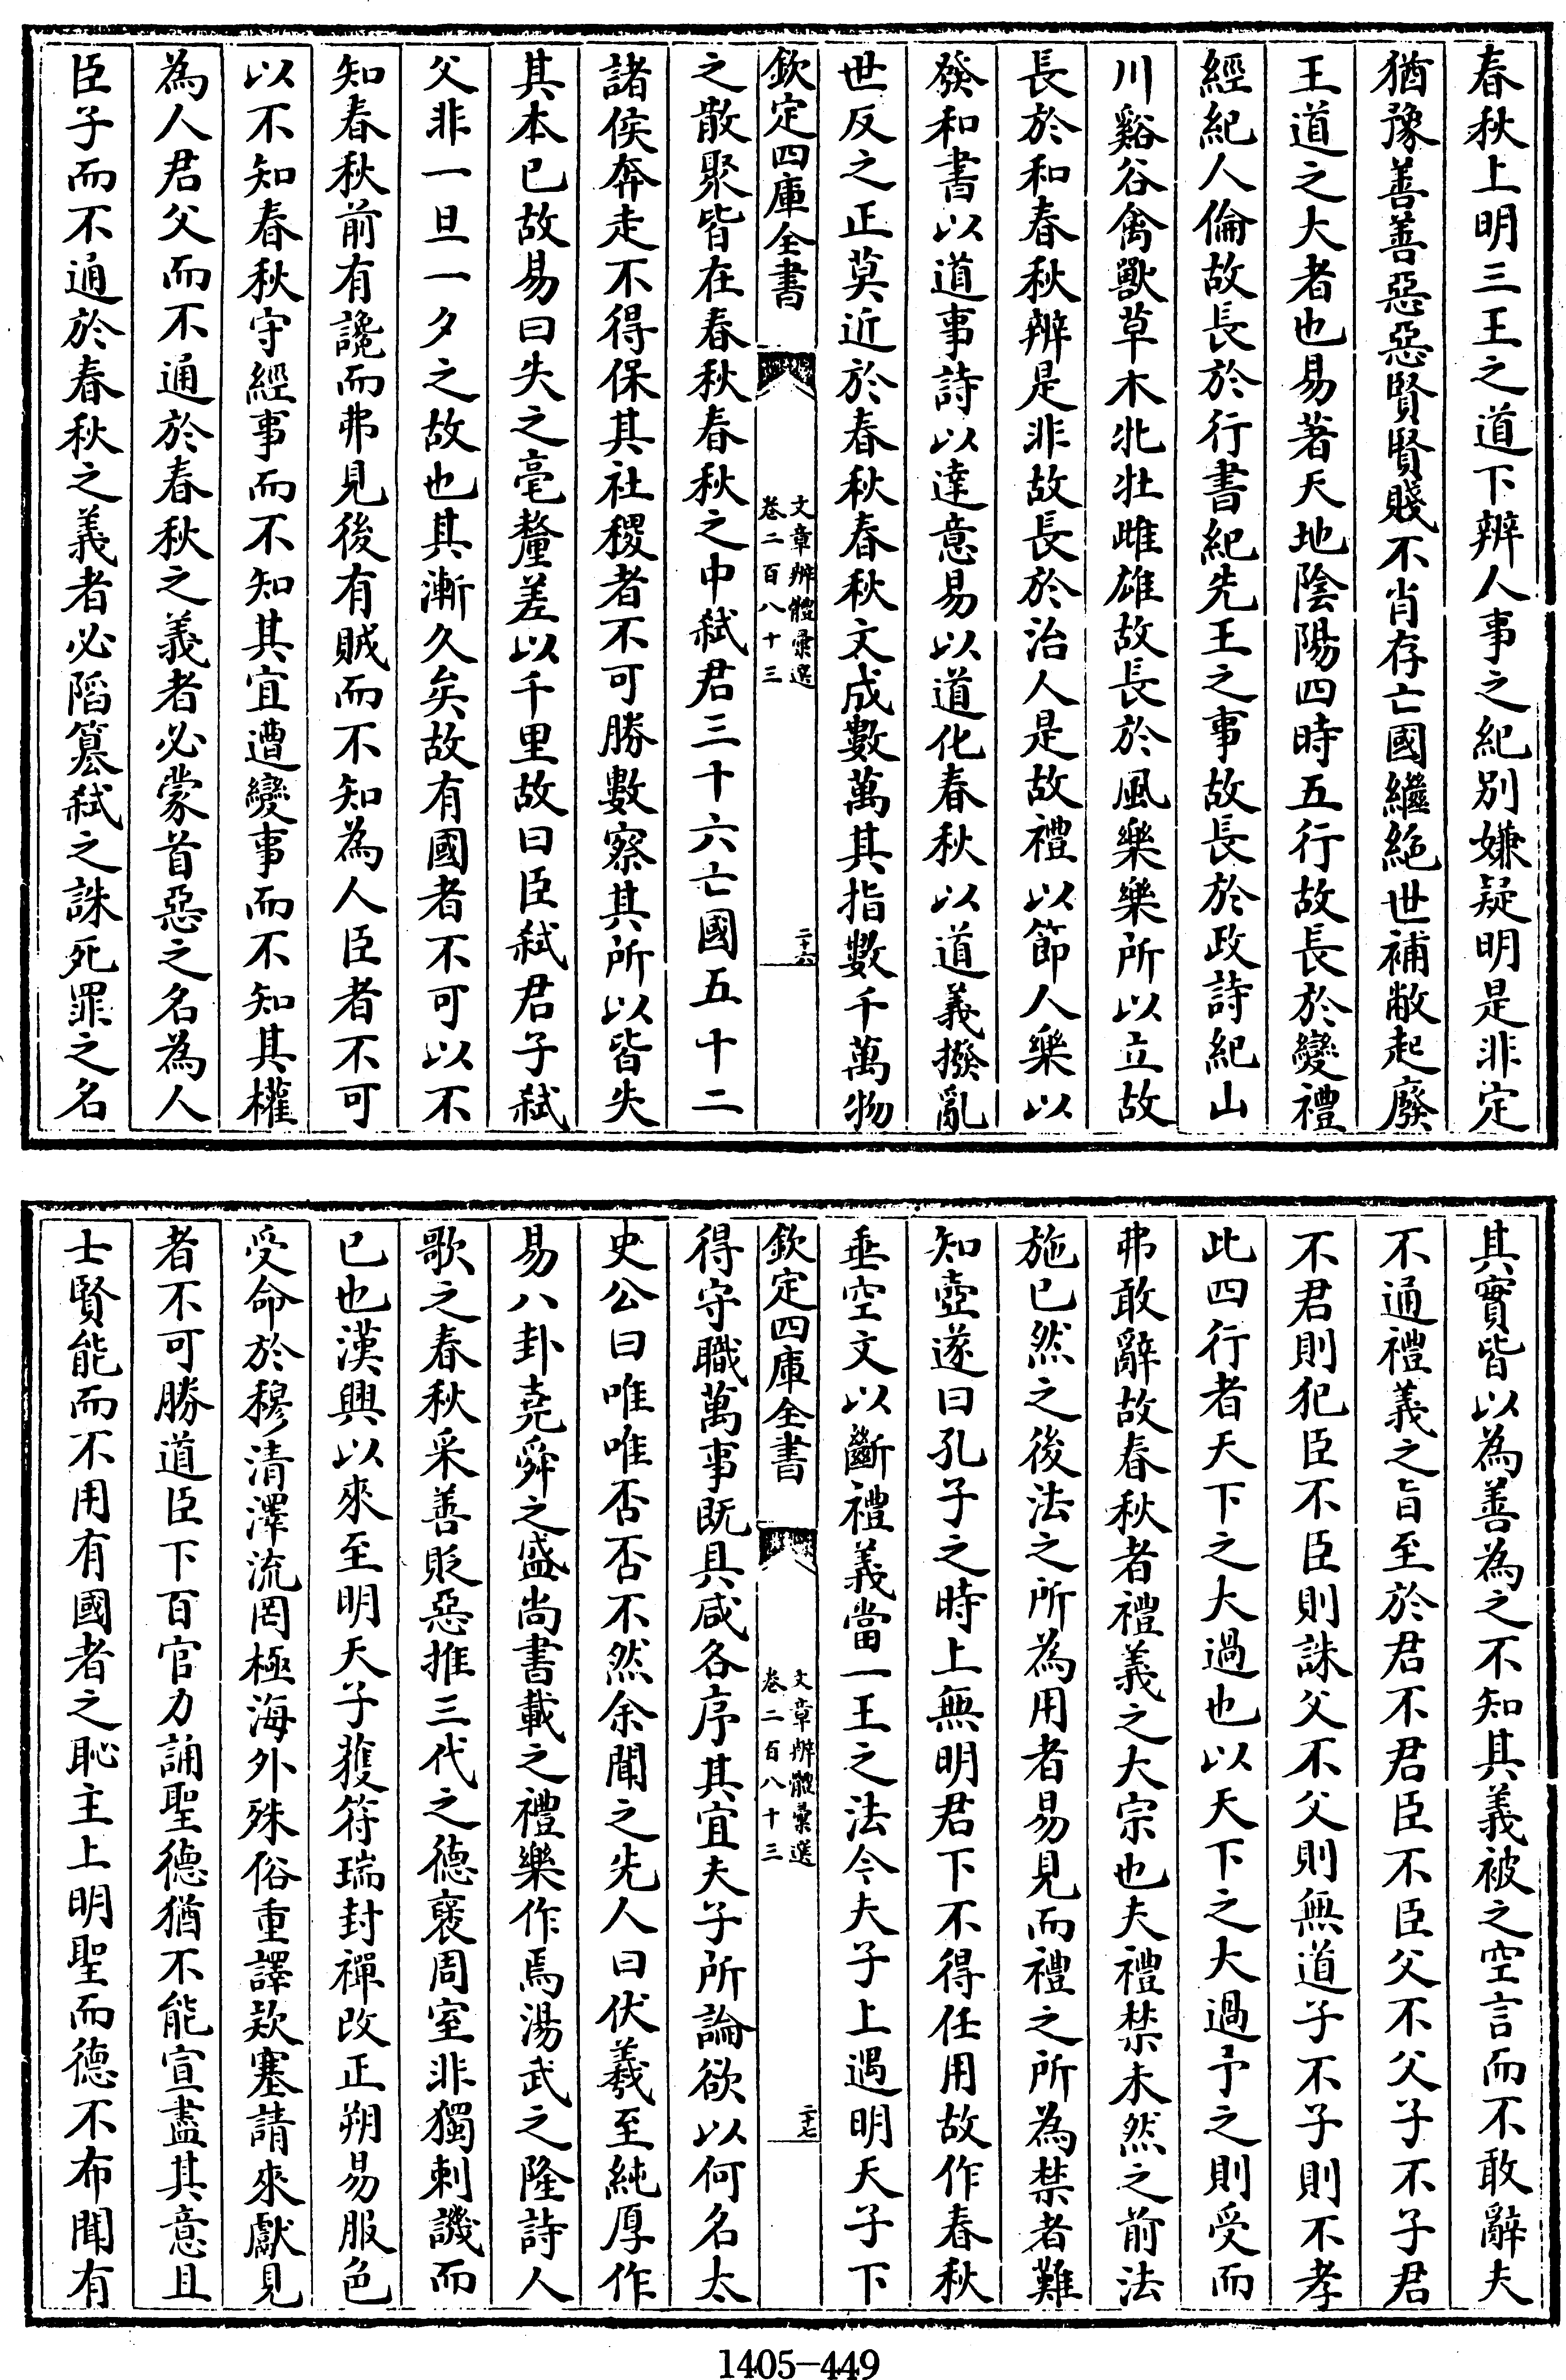 春秋上明三王之道下辨人事之紀别嫌疑明是非定
猶豫善善惡惡賢賢賤不肖存亡國繼絶世補敝起廢
王道之大者也易著天地陰陽四時五行故長於變禮
經紀人倫故長於行書紀先王之事故長於政詩紀山
川谿谷禽獸草木牝牡雌雄故長於風樂樂所以立故
長於和春秋辨是非故長於治人是故禮以節人樂以
發和書以道事詩以達意易以道化春秋以道義撥亂
世反之正莫近於春秋春秋文成數萬其指數千萬物
欽定四庫全書
文章辨體彙選
卷二百八十三
二十六
之散聚皆在春秋春秋之中弑君三十六亡國五十二
諸侯奔走不得保其社稷者不可勝數察其所以皆失
其本已故易曰失之毫釐差以千里故曰臣弑君子弑
父非一旦一夕之故也其漸久矣故有國者不可以不
知春秋前有讒而弗見後有賊而不知為人臣者不可
以不知春秋守經事而不知其宜遭變事而不知其權
為人君父而不通於春秋之義者必蒙首惡之名為人
臣子而不通於春秋之義者必陷簒弑之誅死罪之名
其實皆以為善為之不知其義被之空言而不敢辭夫
不通禮義之旨至於君不君臣不臣父不父子不子君
不君則犯臣不臣則誅父不父則無道子不子則不孝
此四行者天下之大過也以天下之大過予之則受而
弗敢辭故春秋者禮義之大宗也夫禮禁未然之前法
施已然之後法之所為用者易見而禮之所為禁者難
知壺遂曰孔子之時上無明君下不得任用故作春秋
垂空文以斷禮義當一王之法今夫子上遇明天子下
欽定四庫全書
文章辨體彙選
卷二百八十三
二十七
得守職萬事既具咸各序其宜夫子所論欲以何名太
史公曰唯唯否否不然余聞之先人曰伏羲至純厚作
易八卦堯舜之盛尚書載之禮樂作焉湯武之隆詩人
歌之春秋采善貶惡推三代之德襃周室非獨刺譏而
已也漢興以來至明天子獲符瑞封禪改正朔易服色
受命於穆清澤流罔極海外殊俗重譯款塞請來獻見
者不可勝道臣下百官力誦聖德猶不能宣盡其意且
士賢能而不用有國者之恥主上明聖而德不布聞有
1405-449